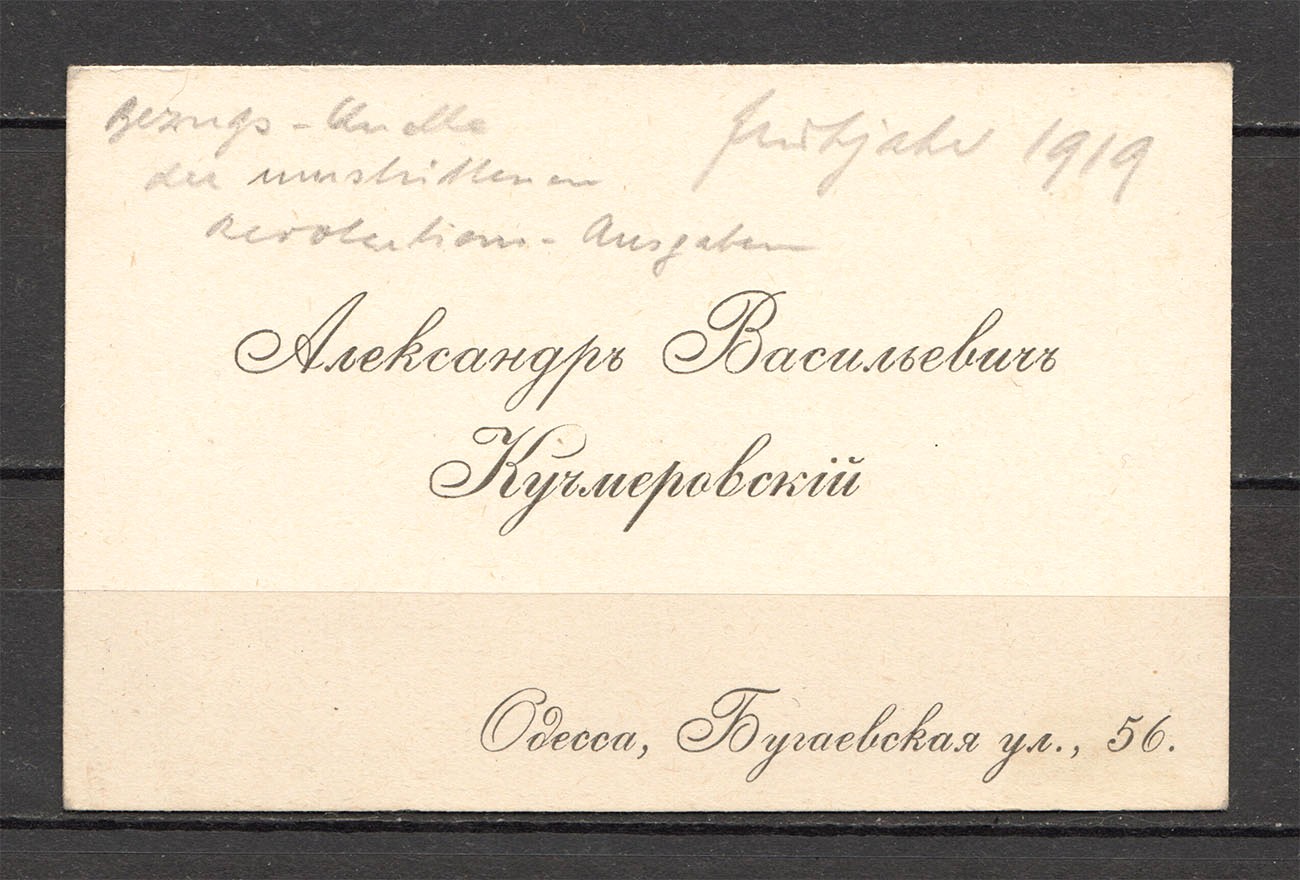 Bezugs-Quelle
Frühjahr 1919
der umstrittenen
Revolutions-Ausgaben
Александръ Васильевичъ
Кучмеровскій
Одесса, Бугаевская ул., 56.